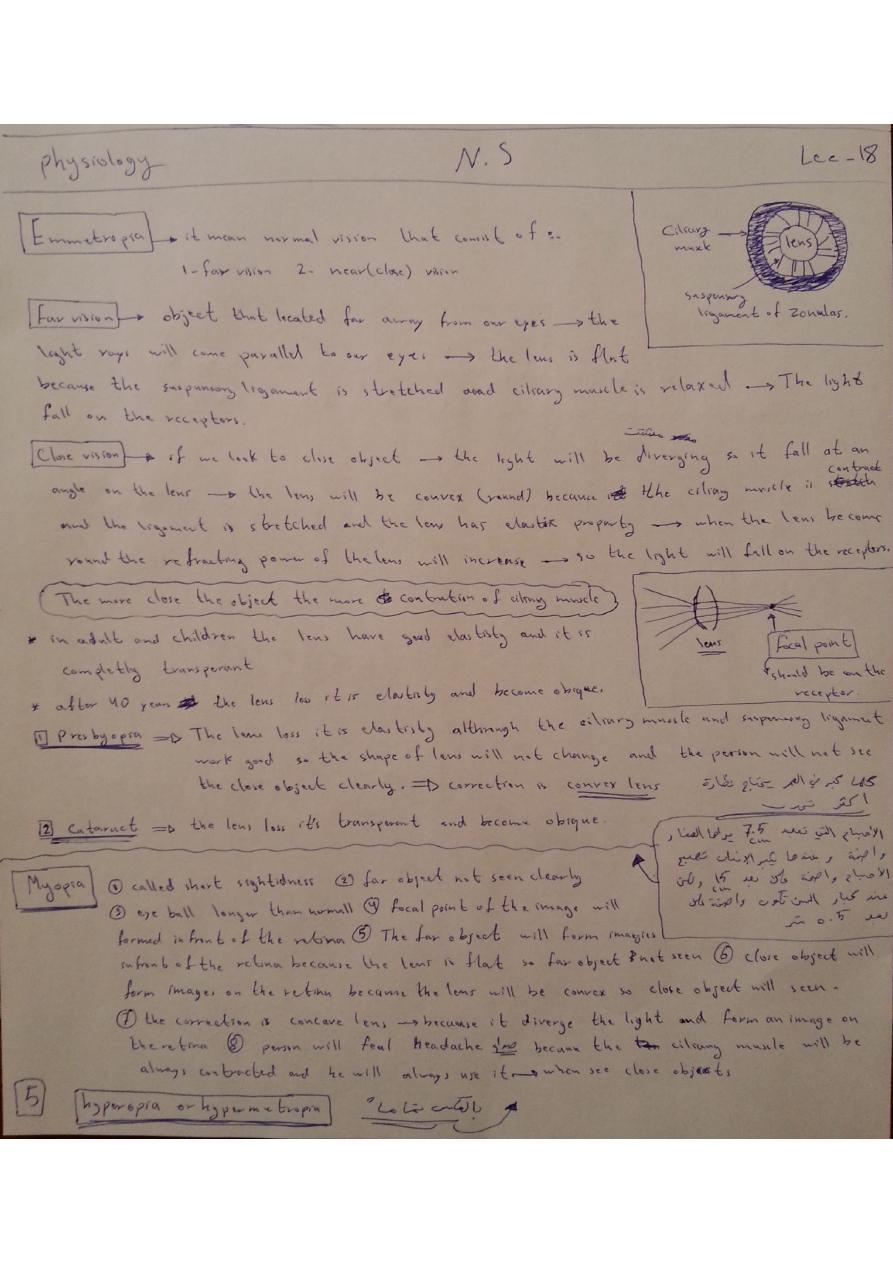 physiology
N.S
Lec - 18
Emmetropia → it mean normal vision that consist of :-
1- far vision 2- near (close) vision
Ciliary
lens
suspensory
ligament of Zonulas.
far vision → object that located far away from our eyes → the
light rays will come parallel to our eyes → the lens is flat
because the suspensory ligament is stretched and ciliary muscle is relaxed → The light
fall on the receptors.
Close vision → if we look to close object → the light will be diverging so it fall at an
angle on the lens → the lens will be convex (round) because the ciliary muscle is contract
and the ligament is stretched and the lens has elastic property → when the lens become
round the refracting power of the lens will increase → so the light will fall on the receptors.
The more close the object the more contrution of ciliary muscle
lens
focal point
should be on the
receptor.
* in adult and children the lens have good elastisty and it is
completly transperant
* after 40 years the lens los it is elastisty and become obique.
1 Presbyopia ⇒ The lens loss it is elastisty although the ciliary muscle and suspensory ligament
work good so the shape of lens will not change and the person will not see
the close object clearly. ⇒ correction is convex lens
كلما كبر في العمر يحتاج نظارة
أكثر تحدب
2 Cataract ⇒ the lens loss it's transperent and become obique.
الأجسام التي تبعد 7.5 cm يراها الصغار
واضحة وعندما يكبر الإنسان تصبح
الأجسام واضحة على بعد 15 cm ولكن
عند كبار السن تكون واضحة على
بعد 0.5 متر
Myopia ① called short sightidness ② far object not seen clearly
③ eye ball longer than normall ④ focal point of the image will
formed infront of the retina ⑤ The far object will form imagies
infront of the retina because the lens is flat so far object not seen ⑥ close object will
form images on the retina because the lens will be convex so close object will seen.
⑦ the correction is concave lens → because it diverge the light and form an image on
the retina ⑧ person will feal headache صداع becaun the ciliary muscle will be
always contracted and he will always use it → when see close objects
5
hyperopia or hypermetropia
بالعكس تماماً